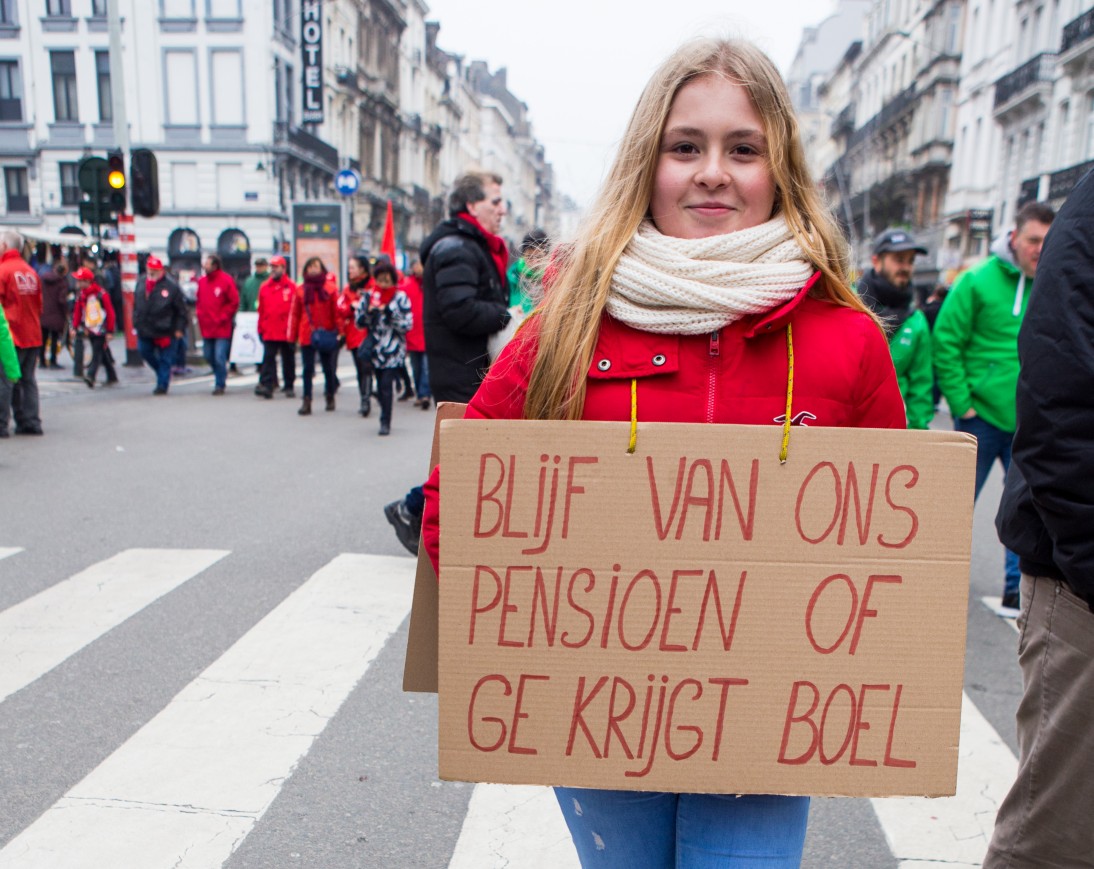 HOTEL
BLIJF VAN ONS
PENSIOEN OF
GE KRIJGT BOEL